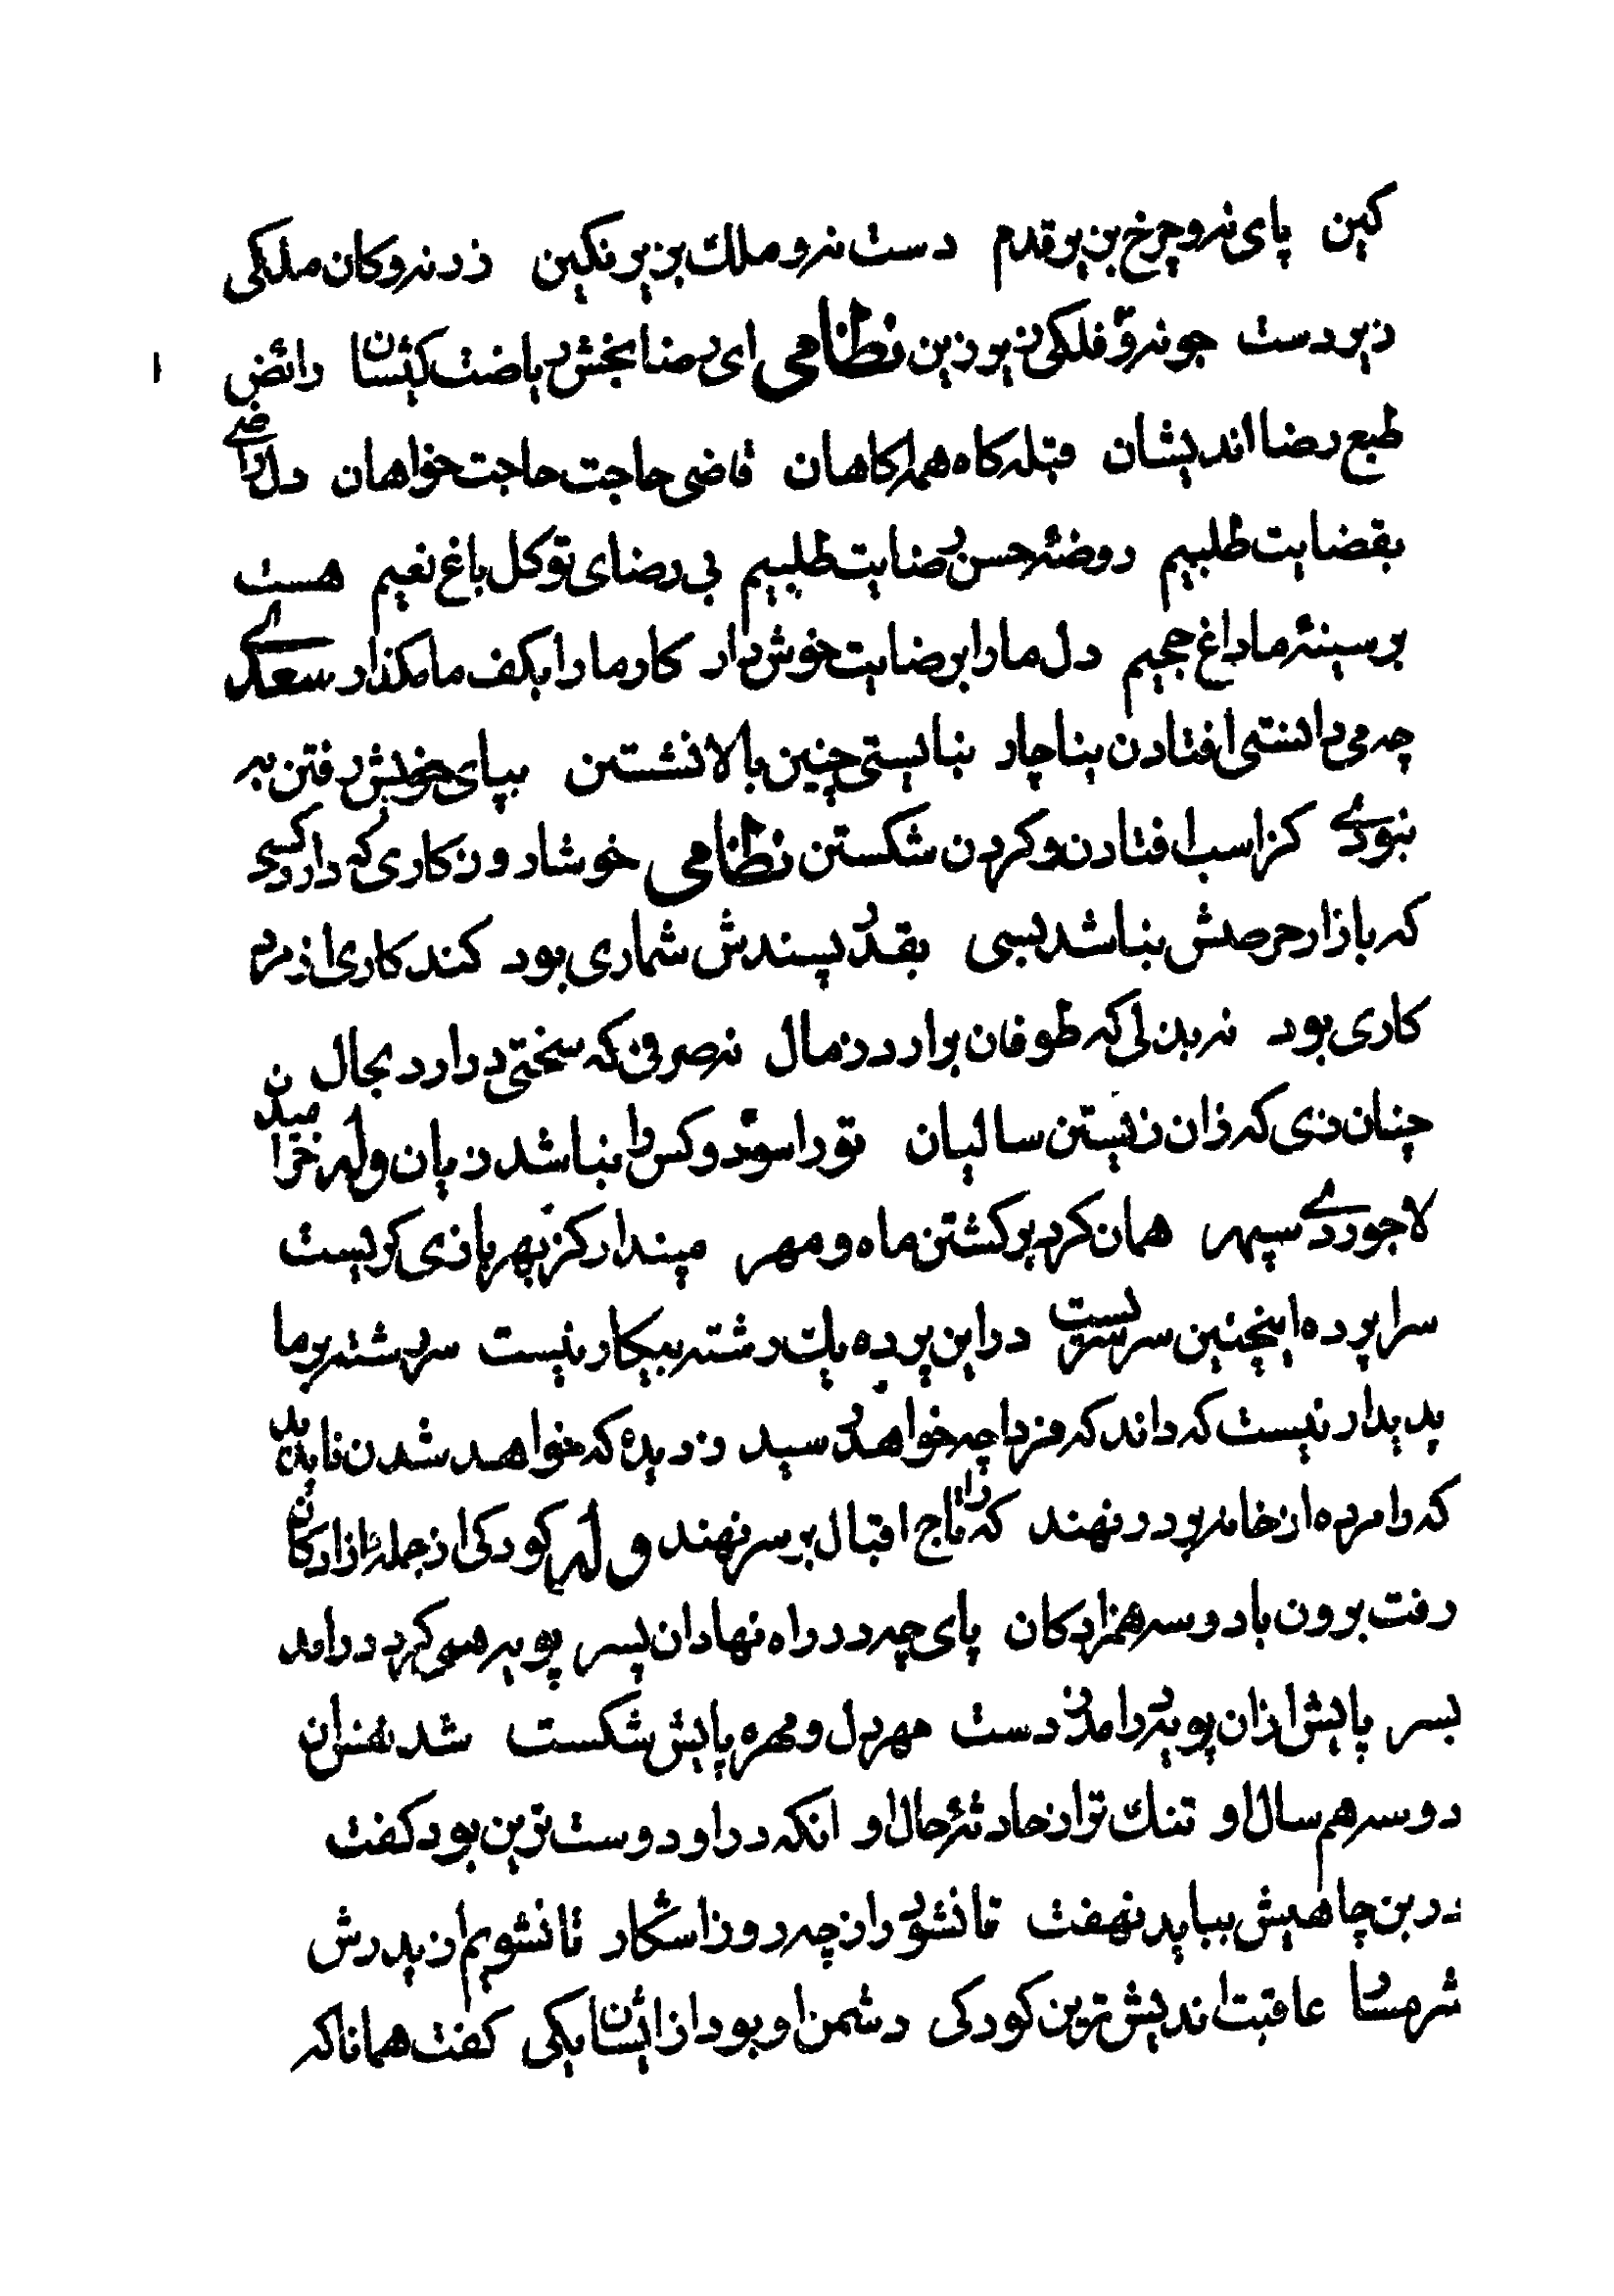 کین پای نه و چرخ بزیر قدم دست نه و ملک بزیر نکین زر نه و کان ملکی
زیر دست جو نه و فلکی زیر زین نظامی ای رضا بخش ریاضت کیشان رائض
طبع رضا اندیشان قبله کاه همه اکاهان قاضی حاجت حاجت خواهان دل راضی
بقضایت طلبیم روضهٔ حسن رضایت طلبیم بی رضای تو کل باغ نعیم هست
بر سینهٔ ما داغ جحیم دل ما را برضایت خوش دار کار ما را بکف ما مکذار سعدی
چه می دانستی افتادن بناچار نبایستی چنین بالا نشستن بپای خویش رفتن به
نبودی کز اسب افتادن و کردن شکستن نظامی خوشا روزکاری که دارد کسی
که بازار حرصش نباشد بسی بقدر پسندش شماری بود کند کاری از مرد
کاری بود نه بذلی که طوفان برارد ز مال نه صرفی که سختی درارد بحال
چنان زی که زان زیستن سالیان تو را سود و کس را نباشد زیان وله خرامیدن
لاجوردی سپهر همان کرد بر کشتن ماه و مهر مپندار کز بهر بازی کریست
سراپرده اینچنین سرسریست در این پرده یک رشته بیکار نیست سر رشته بر ما
پدیدار نیست که داند که فردا چه خواهد رسید ز دیده که خواهد شدن ناپدید
که را مرده از خانه بر در نهند که را تاج اقبال بر سر نهند وله کودکی از جملهٔ ازادکان
رفت برون با دو سه همزادکان پای چه در راه نهاد ان پسر پویه همی کرد و درامد
بسر پایش ازان پویه درامد ز دست مهر دل و مهره پایش شکست شد نفس ان
دو سه هم سال او تنک تر از حادثهٔ حال او انکه در او دوست ترین بود کفت
در بن چاهیش بباید نهفت تا نشود راز چه روز اشکار تا نشویم از پدرش
شرمسار عاقبت اندیش ترین کودکی دشمن او بود از ایشان یکی کفت همانا که